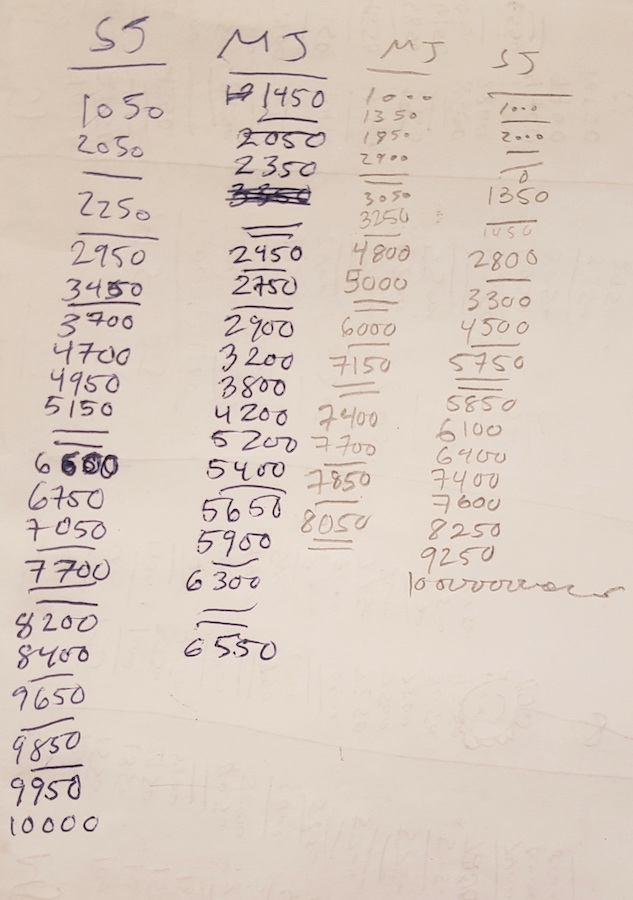 SJ
1050
2050
2250
2950
3450
3700
4700
4950
5150
6600
6750
7050
7700
8200
8400
9650
9850
9950
10000
MJ
1450
2050
2350
2450
2750
2900
3200
3800
4200
5200
5400
5650
5900
6300
6550
MJ
1000
1350
1850
2900
3050
3250
4800
5000
6000
7150
7400
7700
7850
8050
SJ
1000
2000
0
1350
2800
3300
4500
5750
5850
6100
6900
7400
7600
8250
9250